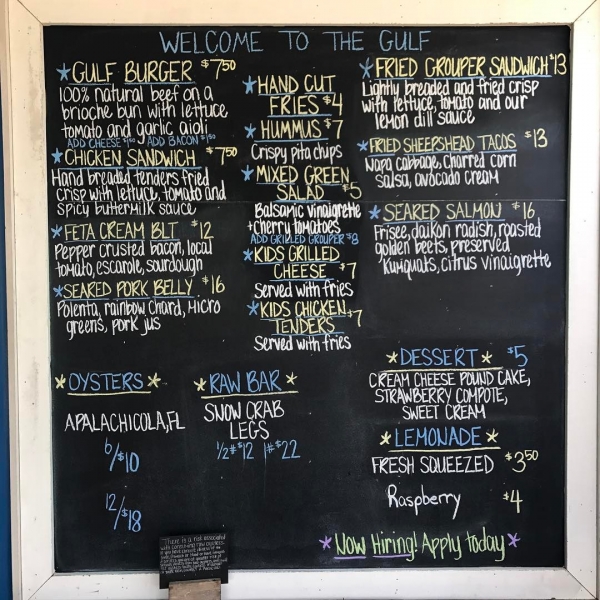 WELCOME TO THE GULF
GULF BURGER $7.50
100% natural beef on a
brioche bun with lettuce,
tomato and garlic aioli
ADD CHEESE $1.50 ADD BACON $1.50
CHICKEN SANDWICH $7.50
Hand breaded tenders fried
crisp with lettuce, tomato and
spicy buttermilk sauce
FETA CREAM BLT $12
Pepper crusted bacon, local
tomato, escarole, sourdough
SEARED PORK BELLY $16
Polenta, rainbow chard, micro
greens, pork jus
HAND CUT
FRIES $4
HUMMUS $7
Crispy pita chips
MIXED GREEN
SALAD $5
Balsamic vinaigrette
+cherry tomatoes
ADD GRILLED GROUPER $8
KIDS GRILLED
CHEESE $7
Served with fries
KIDS CHICKEN
TENDERS $7
Served with fries
FRIED GROUPER SANDWICH $13
Lightly breaded and fried crisp
with lettuce, tomato and our
lemon dill sauce
FRIED SHEEPSHEAD TACOS $13
Napa cabbage, charred corn
salsa, avocado cream
SEARED SALMON $16
Frisee, daikon radish, roasted
golden beets, preserved
kumquats, citrus vinaigrette
OYSTERS
APALACHICOLA, FL
6/$10
12/$18
RAW BAR
SNOW CRAB
LEGS
1/2# $12 1# $22
DESSERT $5
CREAM CHEESE POUND CAKE,
STRAWBERRY COMPOTE,
SWEET CREAM
LEMONADE
FRESH SQUEEZED $3.50
Raspberry $4
Now Hiring! Apply today
There is a risk associated
with consuming raw oysters.